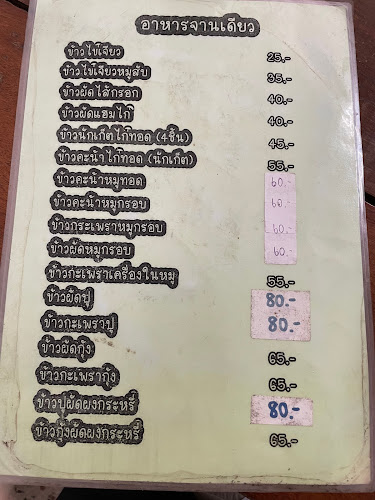 อาหารจานเดียว
ข้าวไข่เจียว 25.-
ข้าวไข่เจียวหมูสับ 35.-
ข้าวผัดไส้กรอก 40.-
ข้าวผัดแฮมไก่ 40.-
ข้าวนักเก็ตไก่ทอด (4ชิ้น) 45.-
ข้าวคะน้าไก่ทอด (นักเก็ต) 55.-
ข้าวคะน้าหมูทอด 60.-
ข้าวคะน้าหมูกรอบ 60.-
ข้าวกระเพราหมูกรอบ 60.-
ข้าวผัดหมูกรอบ 60.-
ข้าวกะเพราเครื่องในหมู 55.-
ข้าวผัดปู 80.-
ข้าวกะเพราปู 80.-
ข้าวผัดกุ้ง 65.-
ข้าวกะเพรากุ้ง 65.-
ข้าวปูผัดผงกระหรี่ 80.-
ข้าวกุ้งผัดผงกระหรี่ 65.-